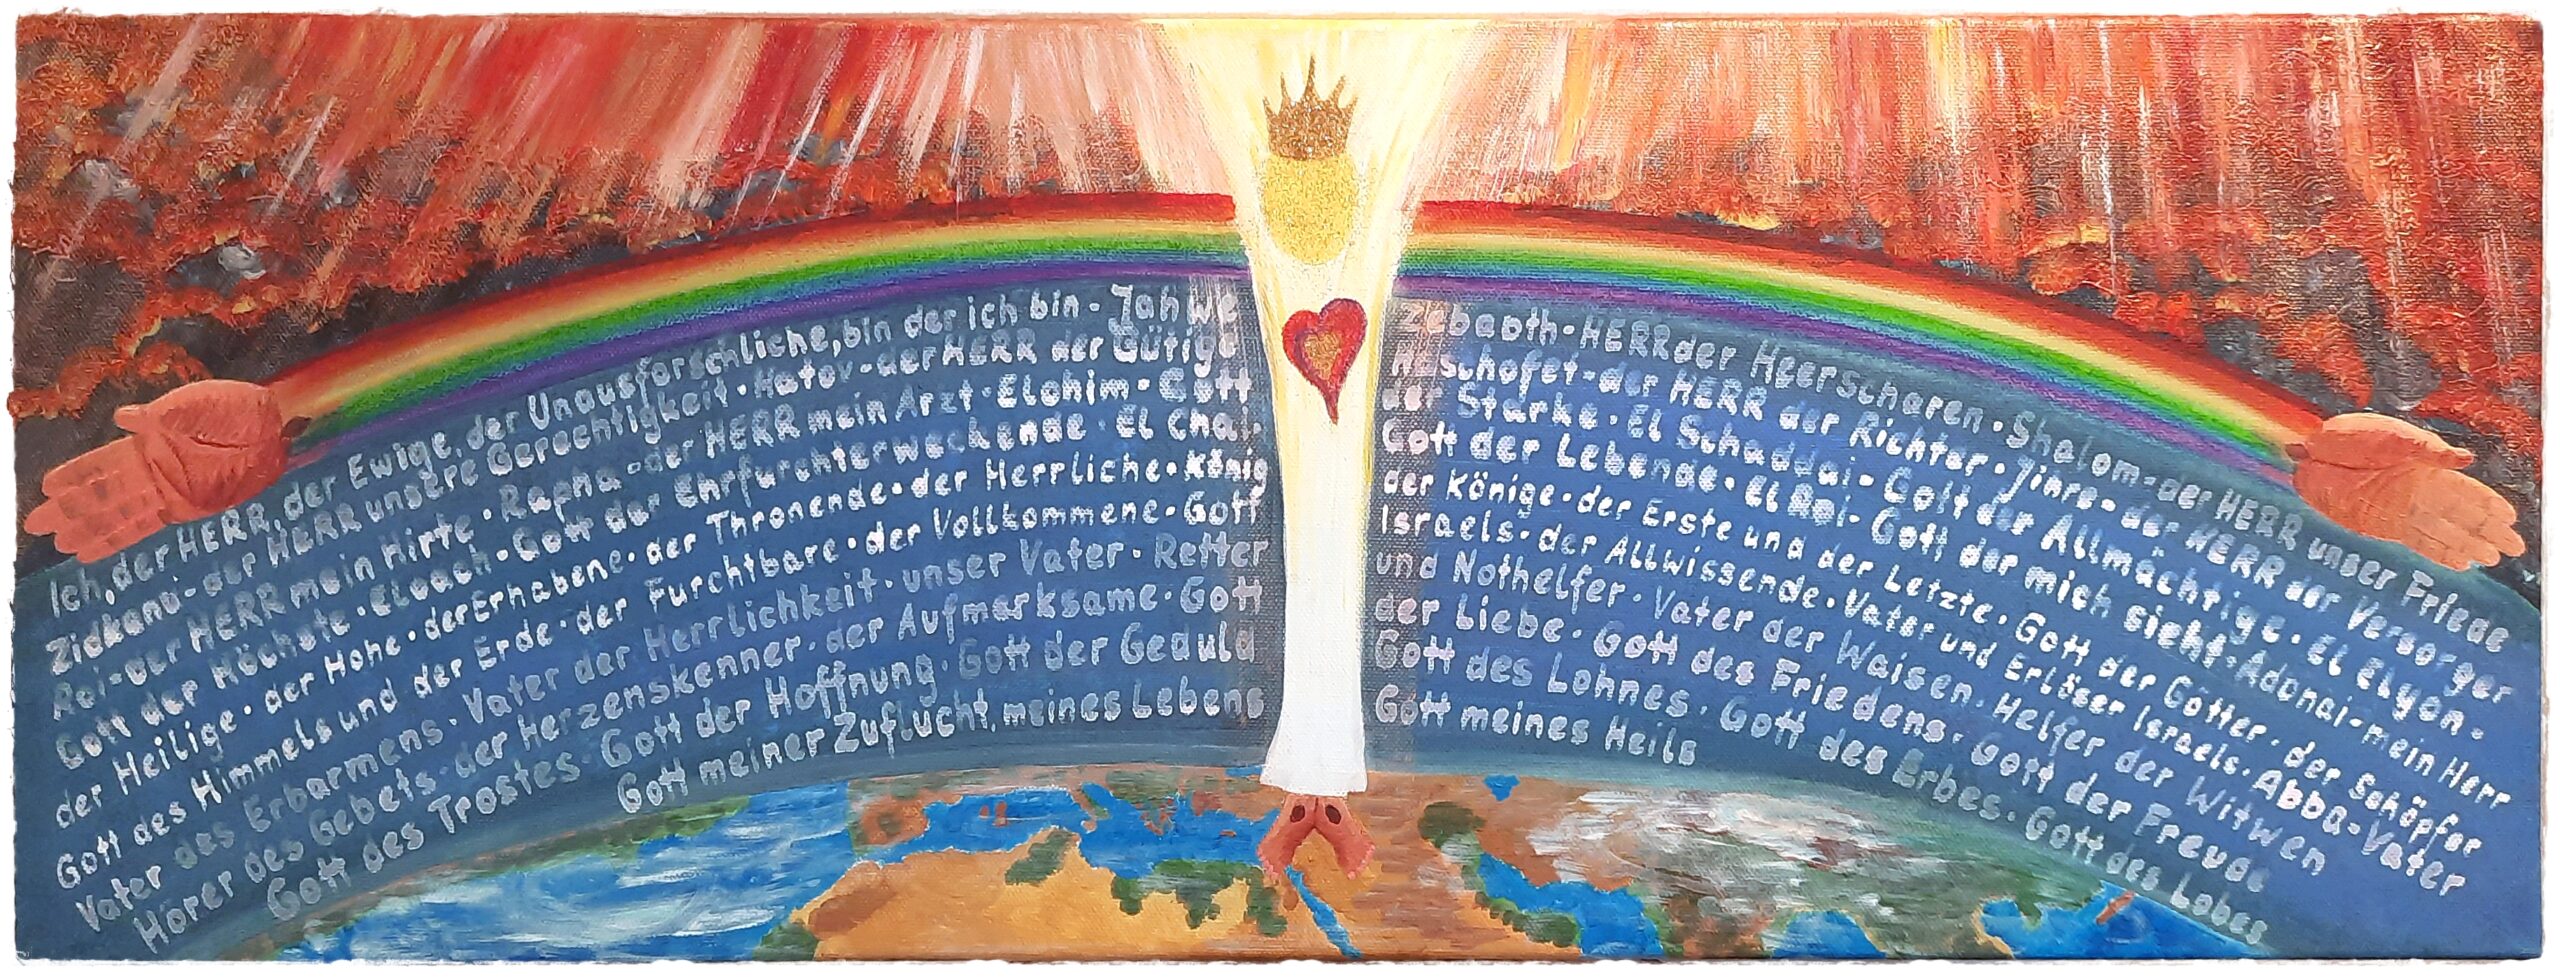 Ich, der HERR, der Ewige, der Unausforschliche, bin der ich bin - Jahwe Zebaoth - HERR der Heerscharen · Shalom - der HERR unser Friede
Zidkenu - der HERR unsere Gerechtigkeit · Hatov - der HERR der Gütige Haschofet - der HERR der Richter · Jinre - der HERR der Versorger
Roi - der HERR mein Hirte · Rapha - der HERR mein Arzt · Elohim - Gott der Starke · El Schaddai - Gott der Allmächtige · El Elyon -
Gott der Höchste · Eloach - Gott der Ehrfurchterweckende · El Chai - Gott der Lebende · El Roi - Gott der mich sieht · Adonai - mein Herr
der Heilige · der Hohe · der Erhabene · der Thronende · der Herrliche · König der Könige · der Erste und der Letzte · Gott der Götter · der Schöpfer
Gott des Himmels und der Erde · der Furchtbare · der Vollkommene · Gott Israels · der Allwissende · Vater und Erlöser Israels · Abba - Vater
Vater des Erbarmens · Vater der Herrlichkeit · unser Vater · Retter und Nothelfer · Vater der Waisen · Helfer der Witwen
Hörer des Gebets · der Herzenskenner · der Aufmerksame · Gott der Liebe · Gott des Friedens · Gott der Freude
Gott des Trostes · Gott der Hoffnung · Gott der Geduld Gott des Lohnes · Gott des Erbes · Gott des Lobes
Gott meiner Zuflucht, meines Lebens Gott meines Heils